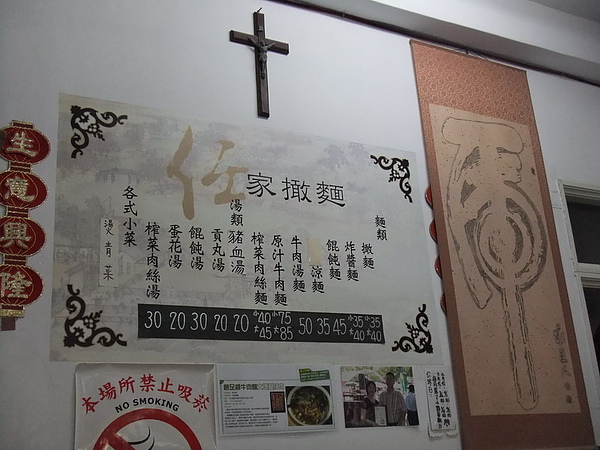 生意興隆
任家擀麵
麵類
擀麵
炸醬麵
餛飩麵
涼麵
牛肉湯麵
原汁牛肉麵
榨菜肉絲麵
湯類
豬血湯
貢丸湯
餛飩湯
蛋花湯
榨菜肉絲湯
各式小菜
燙青菜
30 20 30 20 20 小40 大45 小75 大85 50 35 45 小35 大40 小35 大40
本場所禁止吸菸
NO SMOKING